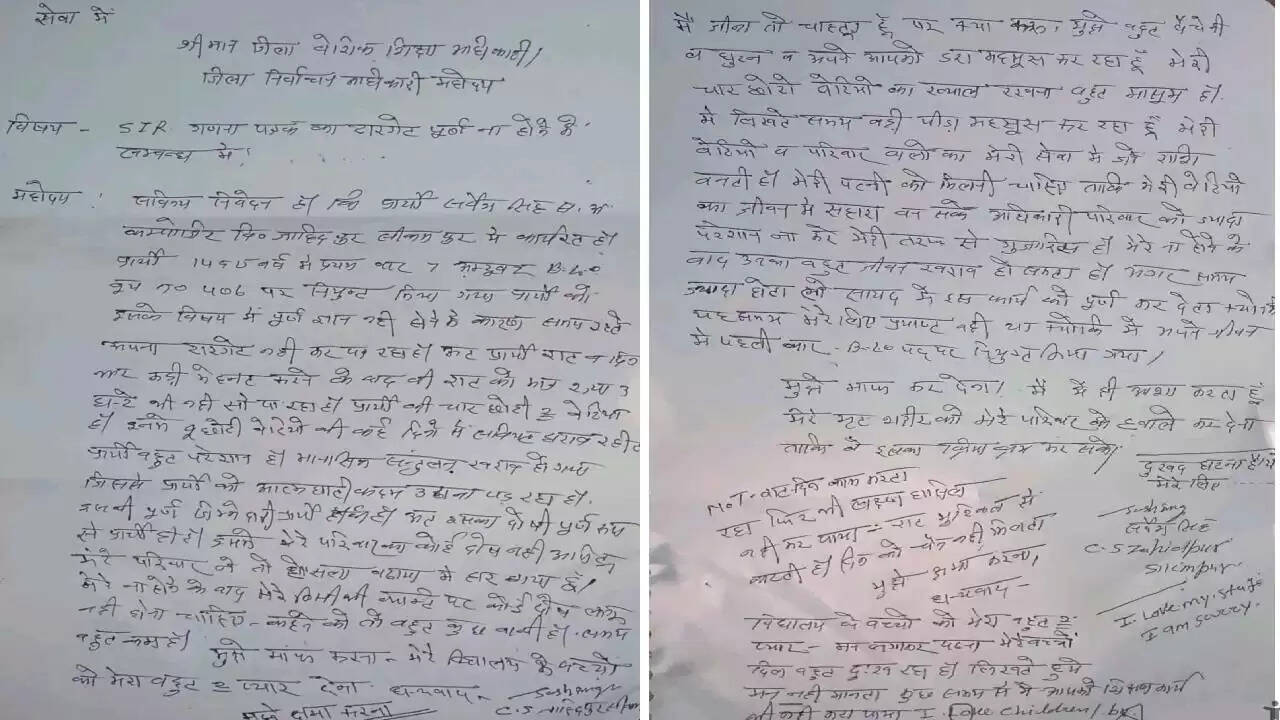 सेवा में
श्रीमान जिला बेसिक शिक्षा अधिकारी/
जिला निर्वाचन अधिकारी महोदय
विषय - SIR गणना पत्रक का टारगेट पूर्ण ना होने के
सम्बन्ध में!
महोदय! सविनय निवेदन है कि प्रार्थी सर्वेश सिंह स.अ
में कार्यरत है।
प्रार्थी वर्ष में प्रथम बार 7 अक्टूबर B.L.O
बूथ no 406 पर नियुक्त किया गया प्रार्थी को
इसके विषय में पूर्ण ज्ञान नही होने के कारण समय रहते
अपना टारगेट नही कर पा रहा है। प्रार्थी रात व दिन
कड़ी मेहनत करने के बाद भी रात को मात्र 2 या 3
घन्टे भी नही सो पा रहा है। प्रार्थी की चार छोटी 2 बेटिया
है। इनमे 2 छोटी बेटियो की कई दिनो से तबियत खराब
प्रार्थी बहुत परेशान है। मानसिक संतुलन खराब हो गया
जिससे प्रार्थी को आत्मघाती कदम उठाना पड़ रहा है।
इसकी पूर्ण जिम्मेदारी प्रार्थी इसका दोषी पूर्ण रूप
से प्रार्थी ही है। इसमे मेरे परिवार का कोई दोष नही
मेरे परिवार ने तो हौसला बढ़ाया मै हार गया हूँ।
मेरे ना होने के बाद मेरे किसी भी पर कोई दोष
नही होना चाहिए - कहने को तो बहुत कुछ बाकी है। समय
बहुत कम है। मुझे माफ करना - मेरे विद्यालय के बच्चो
को मेरा बहुत 2 प्यार देना धन्यवाद -
मुझे क्षमा करना
मै जीना तो चाहता हूँ पर क्या करू। मुझे बहुत बैचेनी
व घुटन व अपने आपको डरा महसूस कर रहा हूँ मेरी
चार छोटी बेटियो का ख्याल रखना बहुत मासूम है।
मै लिखते समय बड़ी पीड़ा महसूस कर रहा हूँ मेरी
बेटियो व परिवार वालो का मेरी सेवा मे जो राशी
बनती है। मेरी पत्नी को मिलनी चाहिए ताकि मेरी बेटियो
का जीवन मे सहारा बन सके अधिकारी परिवार को ज्यादा
परेशान ना करे मेरी तरफ से गुजारिस है। मेरे ना होने के
बाद उनका बहुत जीवन खराब हो सकता है। अगर समय
ज्यादा होता तो सायद मै इस कार्य को पूर्ण कर देता
यह समय मेरे लिए नही था क्योकि मै अपने जीवन
मे पहली बार - B.L.O पद पर नियुक्त किया गया।
मुझे माफ कर देना। मै ये ही आशा करता हूँ
मेरे मृत शरीर को मेरे परिवार के हवाले कर देना
ताकि वे इसका क्रिया कर सके।
दुखद घटना है।
मेरे लिए
Not - रात दिन काम करता
रहा फिर भी लक्ष्य हासिल
नही कर पाया - रात मुश्किल से
कटती है। दिन को चैन नही मिलता
मुझे क्षमा करना।
धन्यवाद -
सर्वेश सिंह
C.S Zahidpur
I Love my
I am sorry
विद्यालय के बच्चो को मेरा बहुत 2
प्यार - मन लगाकर पढना मेरे बच्चो
दिल बहुत दुःख रहा है। लिखते हुये
मन नही मानता कुछ समय से मै आपको शिक्षण कार्य
भी नही करा पाया I Love children